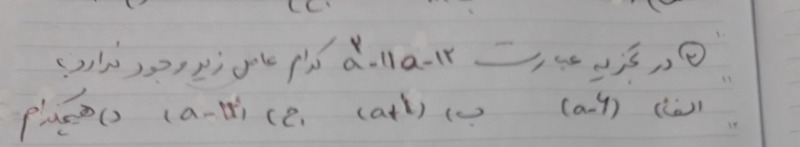 ۲) در تجزیه عبارت a²-۱۱a-۱۲ کدام عامل زیر وجود ندارد؟
الف) (a-۶) ب) (a+۱) ج) (a-۱۲) د) هیچکدام